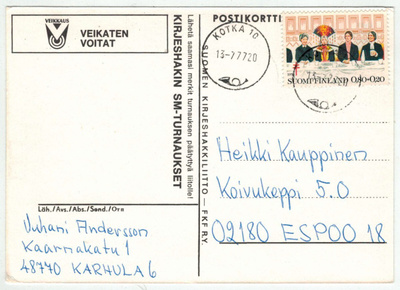 VEIKKAUS
VEIKATEN
VOITAT
KIRJESHAKIN SM-TURNAUKSET
Lähetä saamasi merkit turnauksen päätyttyä liitolle!
Läh./Avs./Abs./Send./Orn
Juhani Andersson
Kaarnakatu 1
48770 KARHULA 6
SUOMEN KIRJESHAKKILIITTO — FKF R.Y.
POSTIKORTTI
KOTKA 10
13-7.77.20
SUOMI FINLAND 0,80+0,20
Heikki Kauppinen
Koivukeppi 5.O
02180 ESPOO 18